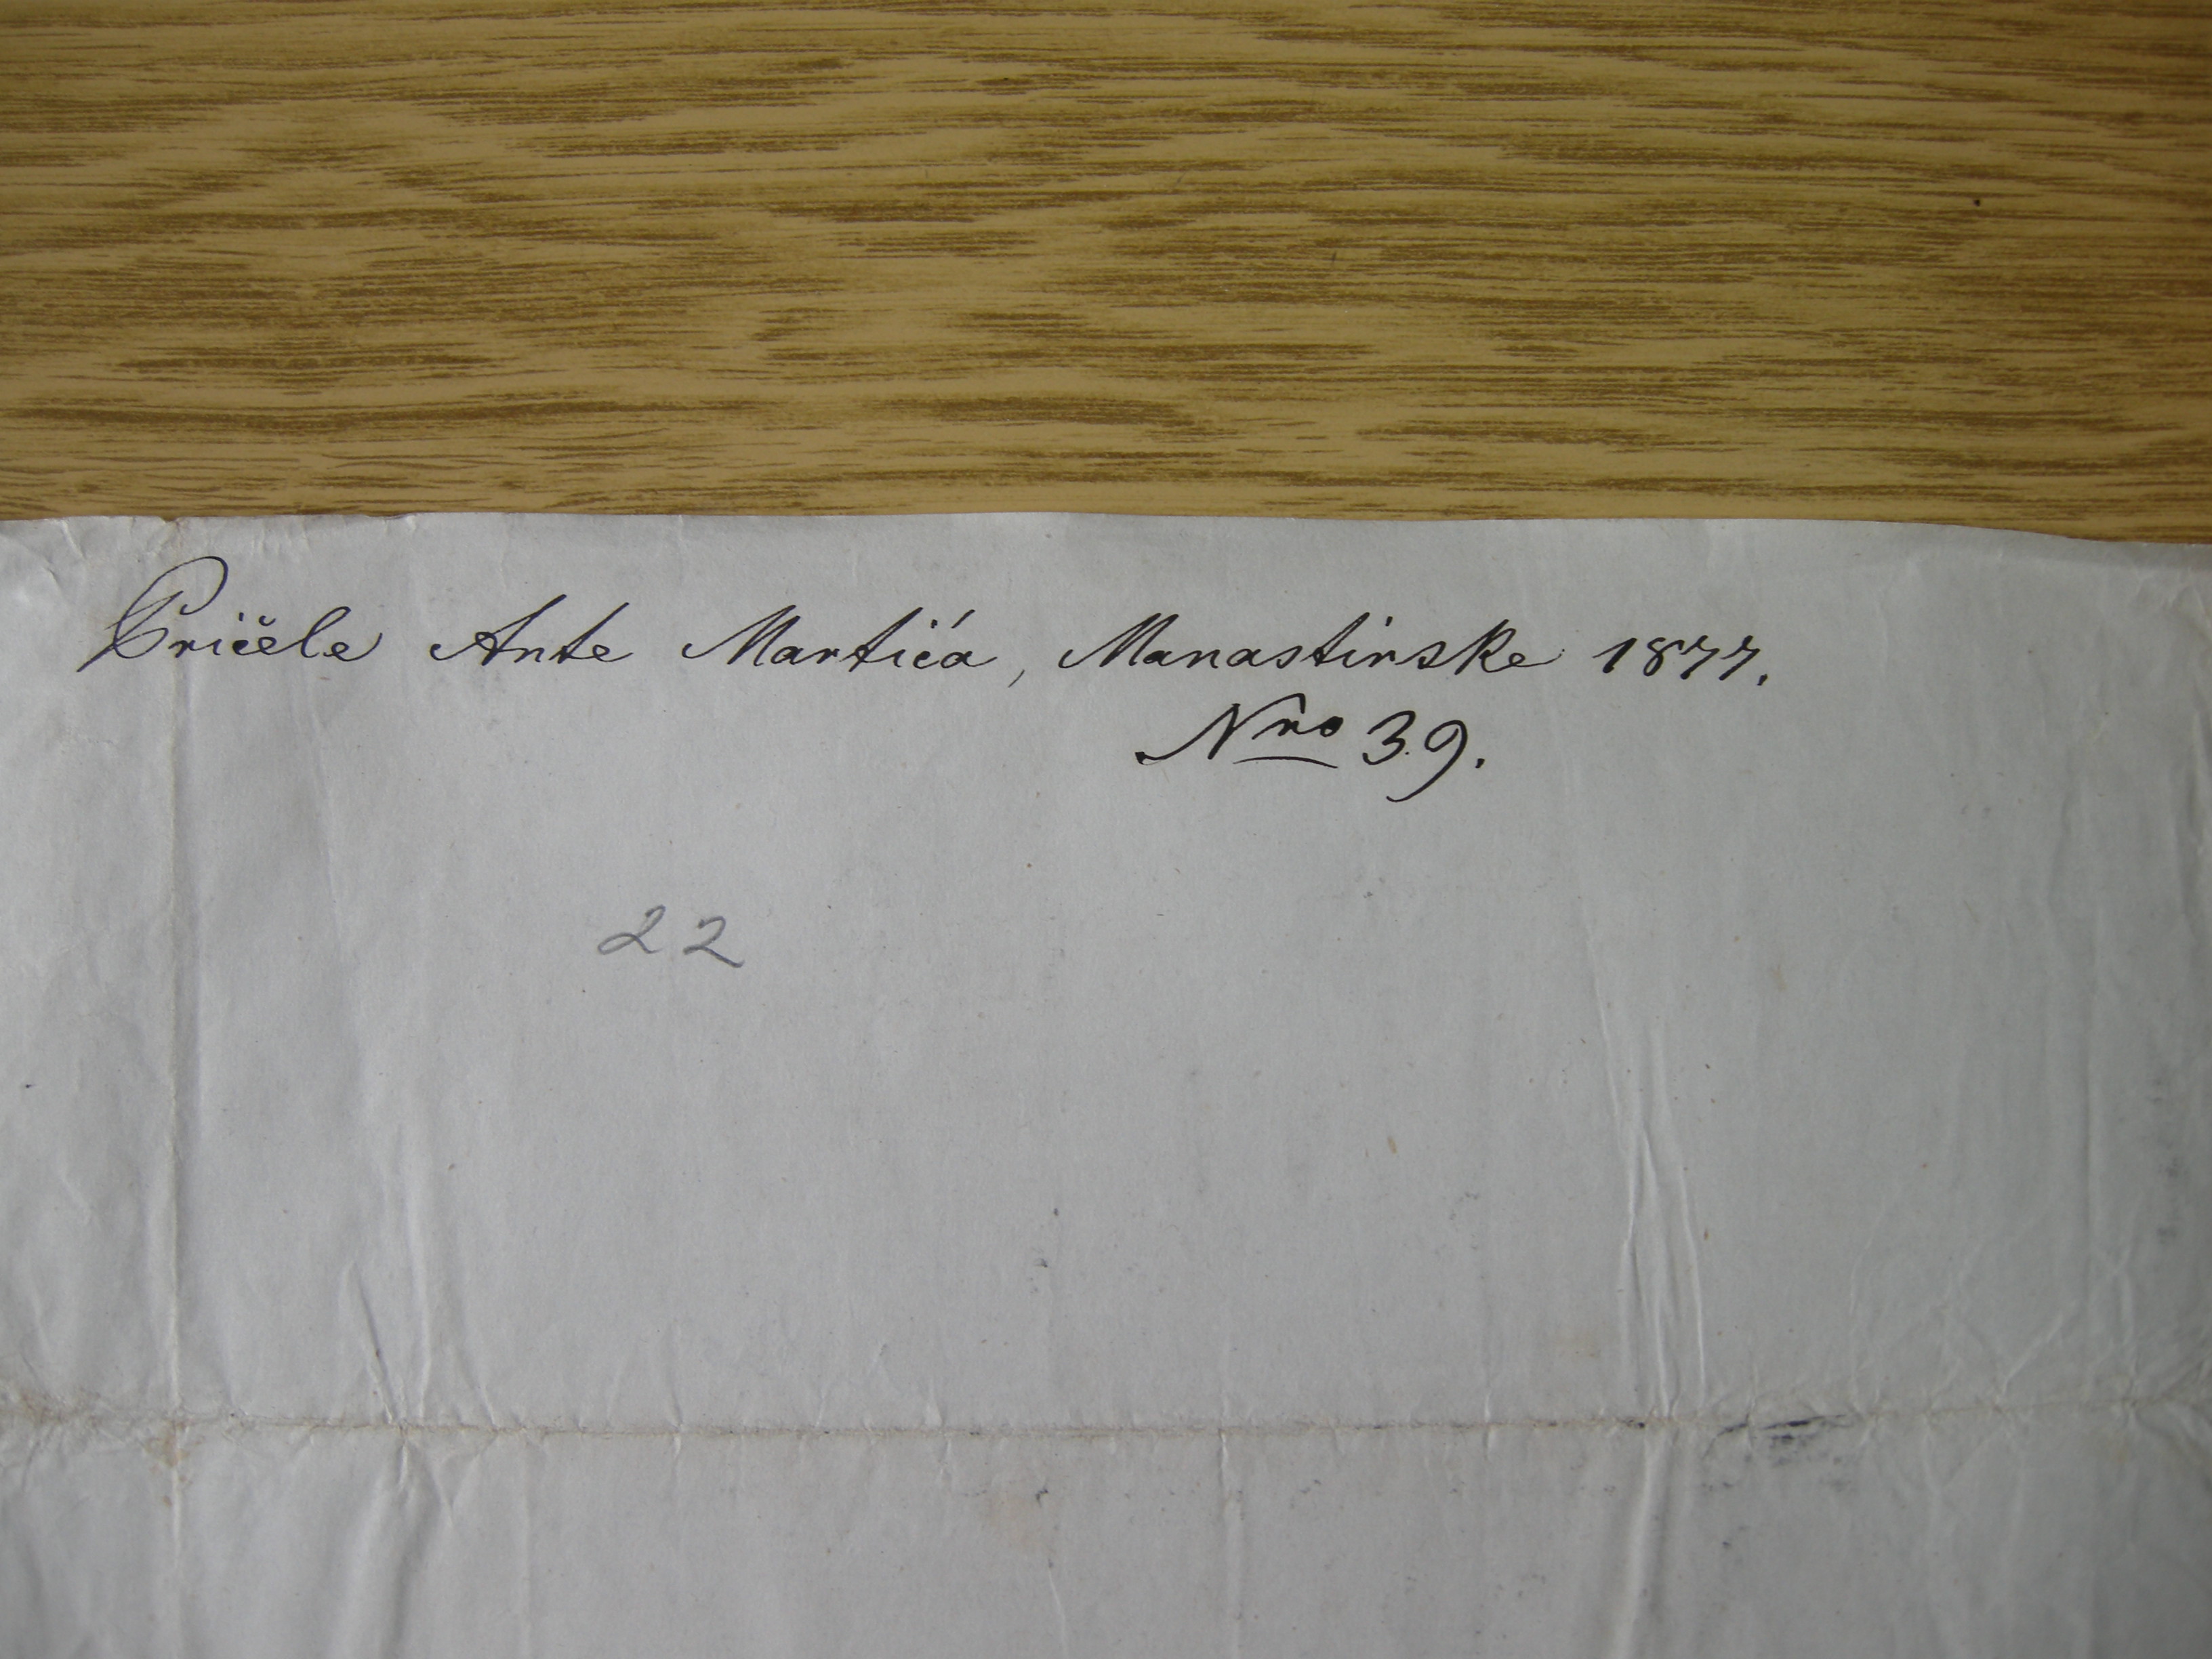 Pričele Ante Martića, Manastirske 1877.
Nro 39.
22